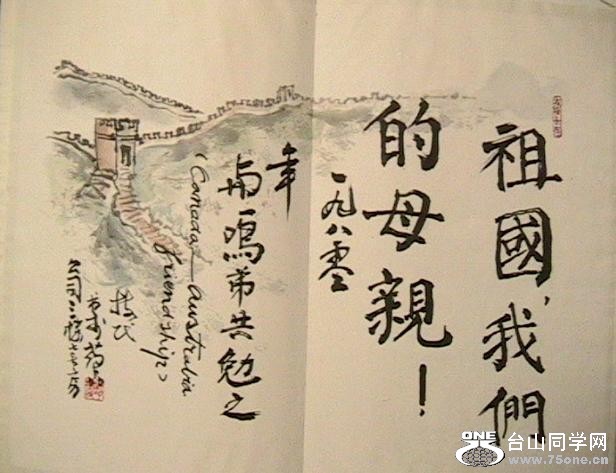 祖國,我們
的母親!
一九八零
年
与鳴弟共勉之
(Canada Australia
friendship)
ONE
台山同学网
www.75one.cn